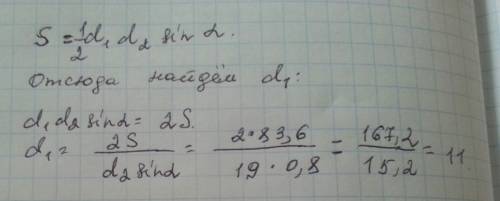 S = 1/2 d₁ d₂ sin α.
Отсюда найдём d₁:
d₁ d₂ sin α = 2S.
d₁ = 2S / d₂ sin α = 2·83,6 / 19·0,8 = 167,2 / 15,2 = 11